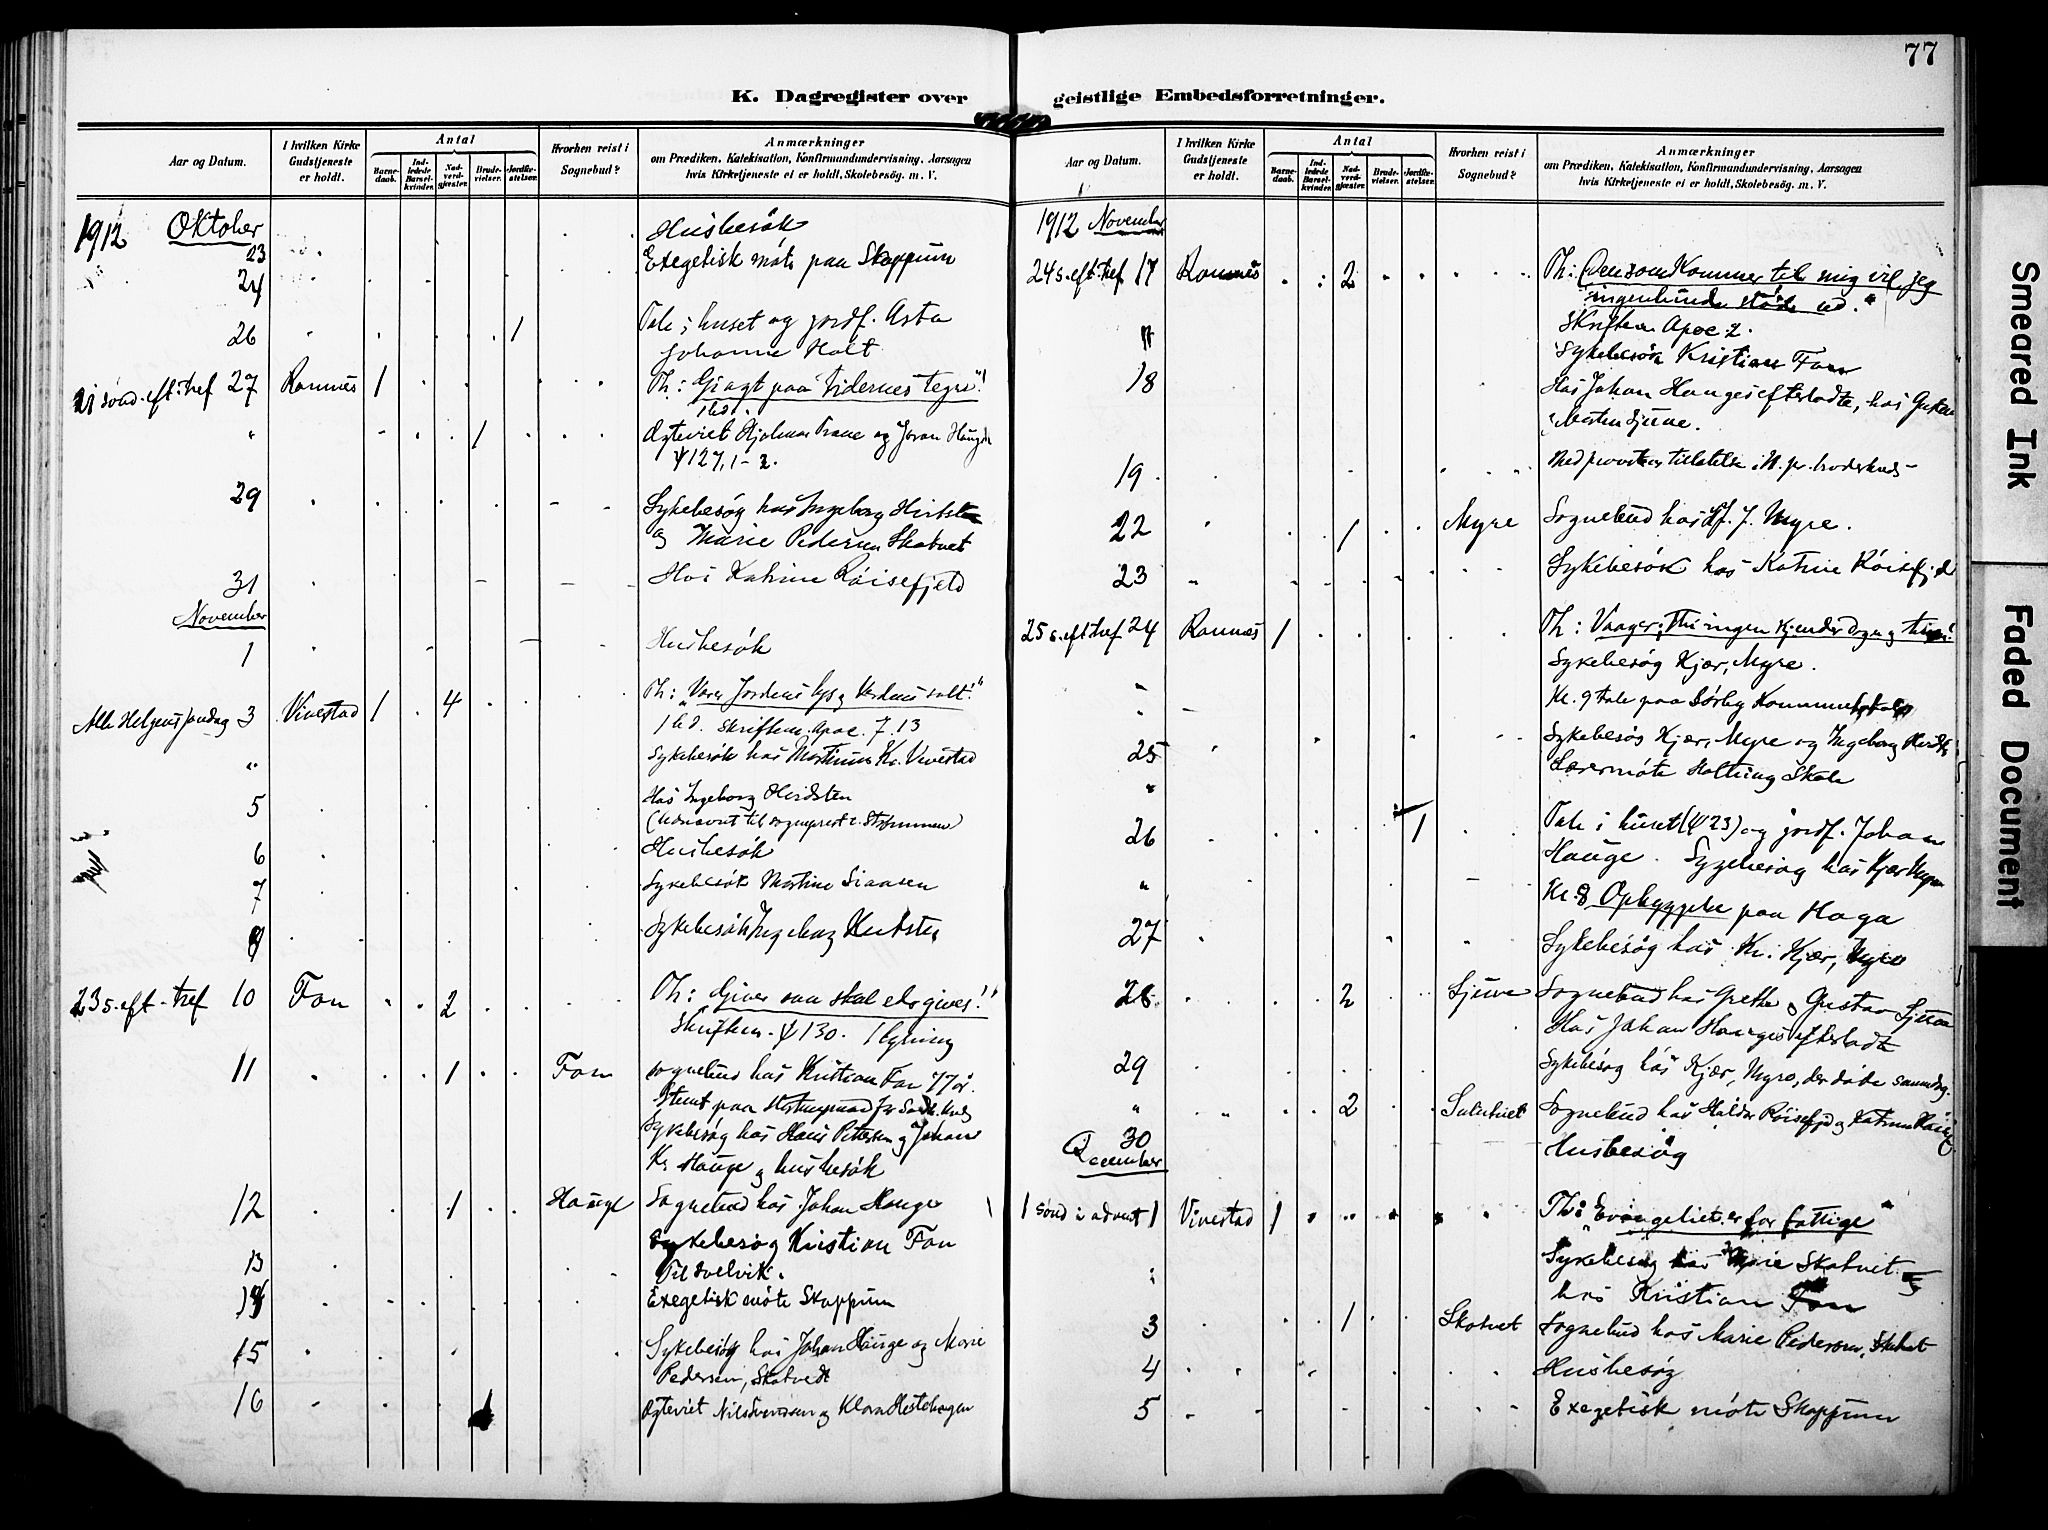 77
K. Dagregister over
Aar og Datum.
I hvilken Kirke
Gudstjeneste
er holdt.
Antal
Barne-
daab.
Ind-
ledede
Barsel-
kvinder.
Nad-
verd-
gjæster.
Brude-
vielser.
Jordfæ-
stelser.
Hvorhen reist i
Sognebud?
Anmærkninger
om Prædiken, Katekisation, Konfirmandundervisning, Aarsagen
hvis Kirketjeneste ei er holdt, Skolebesög. m. V.
1912 Oktober
23 Husbesök
24 Exegetisk möte paa Skoppum
26 1 Tale i huset og jordf. Asta
Johanne Holt
21 sønd. eft. tref 27 Ramnes 1 Th: Giagt paa Tidernes tegn!
" 1 Egteviet Hjalmar Trane og
ψ 127, 1-2.
29 Sykebesøg hos Ingeborg
og Marie Pedersen Skatvet
31 Hos Katrine Röisefjeld
November
1 Husbesök
Alle Helgens søndag 3 Vivestad 1 4 Th: Vær Jordens lys og Verdens salt!"
1 bd. skriftem. Apoc. 7.13
" Sykebesök hos Martinus Kr. Vivestad
5 Hos Ingeborg Hvidsten
(Udnævnt til sogneprest i Strømmen)
6 Husbesök
7 Sykebesök Martine
8 Sykebesök Ingeborg
23 s. eft. tref 10 Fon 2 Th: Giver saa skal eder gives!"
Skriftem. ψ 130. 1 lysning
11 1 Fon Sognebud hos Kristian Fon 77 år.
Stemt paa
Sykebesøg hos Hans Pettersen og Johan
Kr. Hauge og husbesök
12 1 Hauge Sognebud hos Johan Hauge
Sykebesøg Kristian Fon
13 Til Svelvik.
14 Exegetisk möte Skoppum
15 Sykebesøg hos Johan Hauge og Marie
Pedersen, Skatvedt
16 Egteviet Nils Svendsen og Klara Hestehagen
geistlige Embedsforretninger.
Aar og Datum.
I hvilken Kirke
Gudstjeneste
er holdt.
Antal
Barne-
daab.
Ind-
ledede
Barsel-
kvinder.
Nad-
verd-
gjæster.
Brude-
vielser.
Jordfæ-
stelser.
Hvorhen reist i
Sognebud?
Anmærkninger
om Prædiken, Katekisation, Konfirmandundervisning, Aarsagen
hvis Kirketjeneste ei er holdt, Skolebesög. m. V.
1912 November
24 s. eft. tref 17 Ramnes 2 Th: Den som kommer til mig vil jeg
ingenlunde støde ud."
Skriftem Apoc 2.
" Sykebesök Kristian Fon
18 Hos Johan Hauges efterladte, hos Gustav
Sjuve.
19 Med provstens tillatelse i
22 1 Myre Sognebud hos J. Myre.
23 Sykebesök hos Katrine Röisefjeld
25 s. eft tref 24 Ramnes 1 Th: Vaager, Thi ingen kjender dag og time!
Sykebesøg Kjær, Myre.
" Kl. 9 tale paa Sörby
25 Sykebesøg Kjær, Myre og Ingeborg
" Lærermöte Haltung Skole
26 1 Tale i huset (ψ 23) og jordf. Johan
Hauge. Sygebesøg hos Kjær Myre
" Kl. 8 Opbyggelse paa Haga
27 Sykebesøg hos Kr. Kjær, Myre
28 2 Sjuve Sognebud hos Grethe og Gustav Sjuve
Hos Johan Hauges efterladte
29 Sykebesøg hos Kjær, Myre, der döde samme dag.
" 2 Sognebud hos Halvor Röisefjeld og Katrine
30 Husbesøg
December
1 sønd i advent 1 Vivestad 1 Th: Evangeliet er for fattige"
" Sykebesøg hos Marie Skatvet og
hos Kristian Fon
3 1 Skatvet Sognebud hos Marie Pedersen, Skatvet
4 Husbesøg
5 Exegetisk möte Skoppum
Smeared Ink
Faded Document